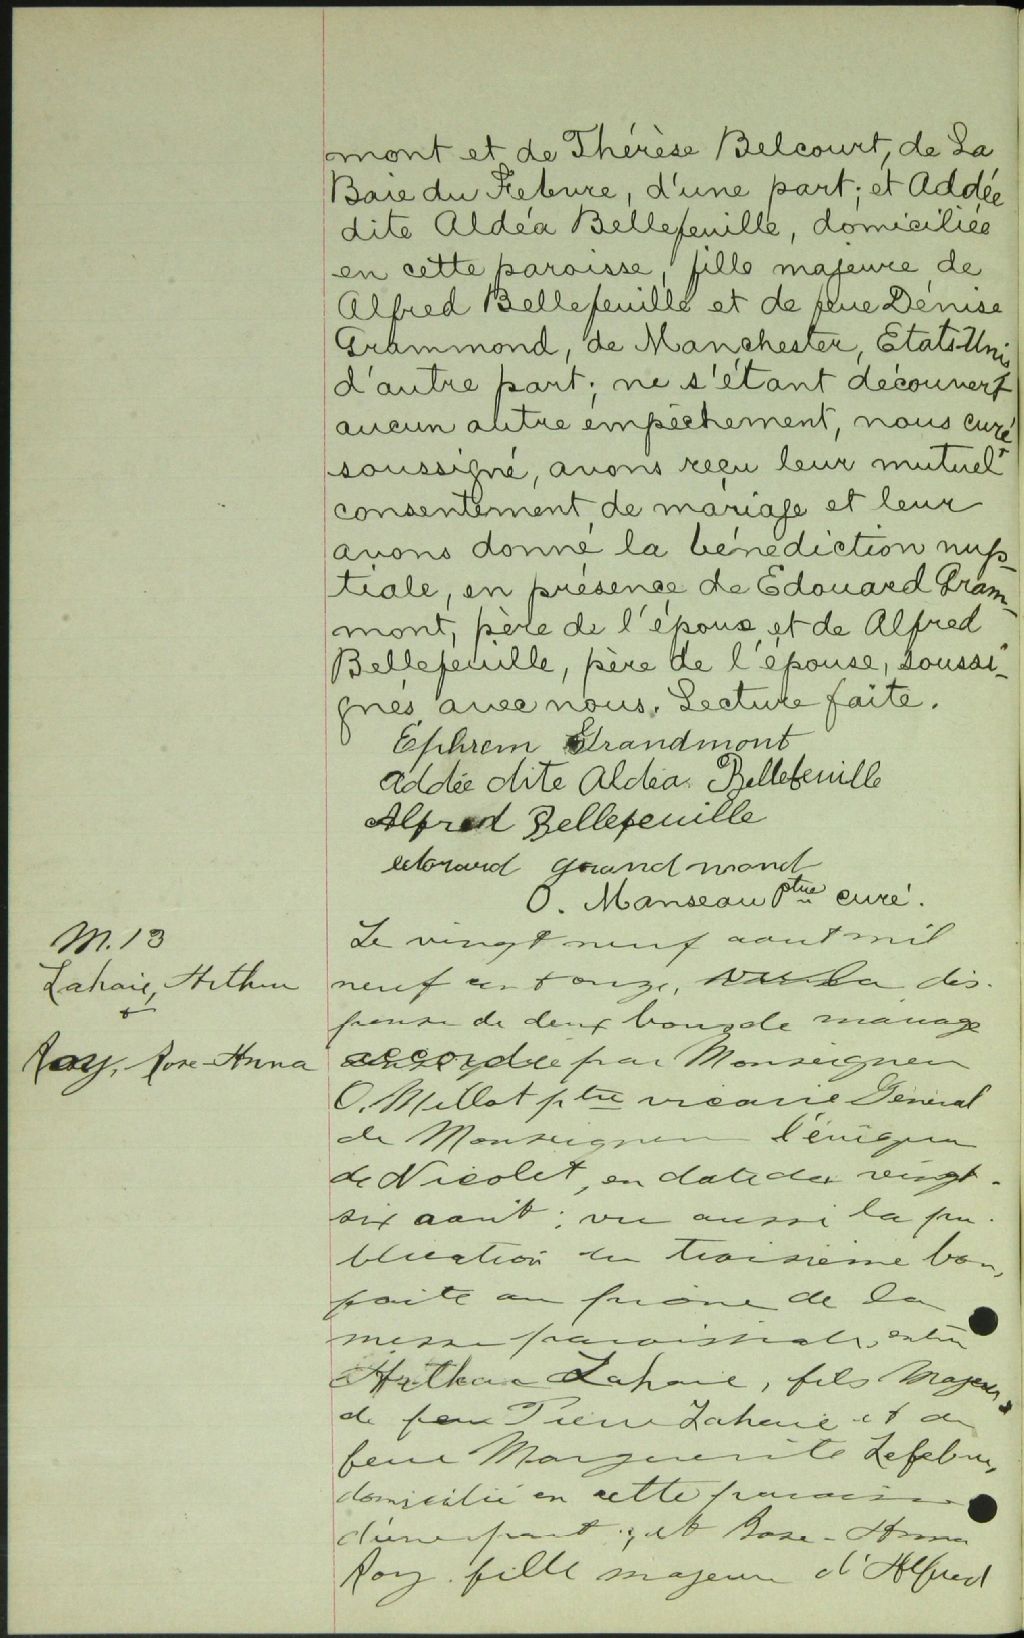 mont et de Thérèse Belcourt, de La
Baie du Febvre, d'une part; et Addée
dite Aldéa Bellefeuille, domiciliée
en cette paroisse, fille majeure de
Alfred Bellefeuille et de feue Dénise
Grammond, de Manchester, Etats-Unis
d'autre part; ne s'étant découvert
aucun autre empêchement, nous curé
soussigné, avons reçu leur mutuel
consentement de mariage et leur
avons donné la bénédiction nup-
tiale, en présence de Edouard Gram-
mont, père de l'époux et de Alfred
Bellefeuille, père de l'épouse, soussi-
gnés avec nous. Lecture faite.
Ephrem Grandmont
Addée dite Aldéa Bellefeuille
Alfred Bellefeuille
edouard grand mond
O. Manseau Ptre curé.
M. 13
Lahaie, Arthur
&
Roy, Rose-Anna
Le vingt neuf aout mil
neuf cent onze, vu la dis-
pense de deux bans de mariage
accordée par Monseigneur
O. Millot ptre vicaire Général
de Monseigneur l'évêque
de Nicolet, en date du vingt-
six août; vu aussi la pu-
blication du troisième ban,
faite au prône de la
messe paroissiale, entre
Arthur Lahaie, fils Majeur
de feu Pierre Lahaie et de
feue Marguerite Lefebvre,
domicilié en cette paroisse
d'une part; et Rose-Anna
Roy fille majeure d'Alfred